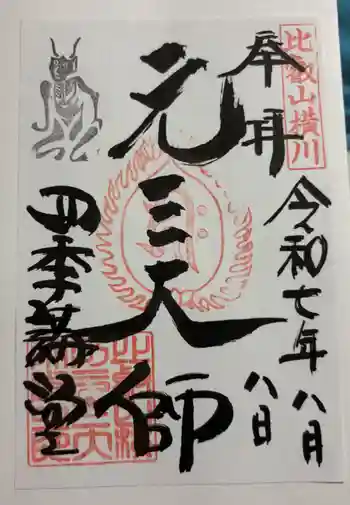 比叡山横川
奉拝
令和七年八月
八日
元三大師
四季講堂